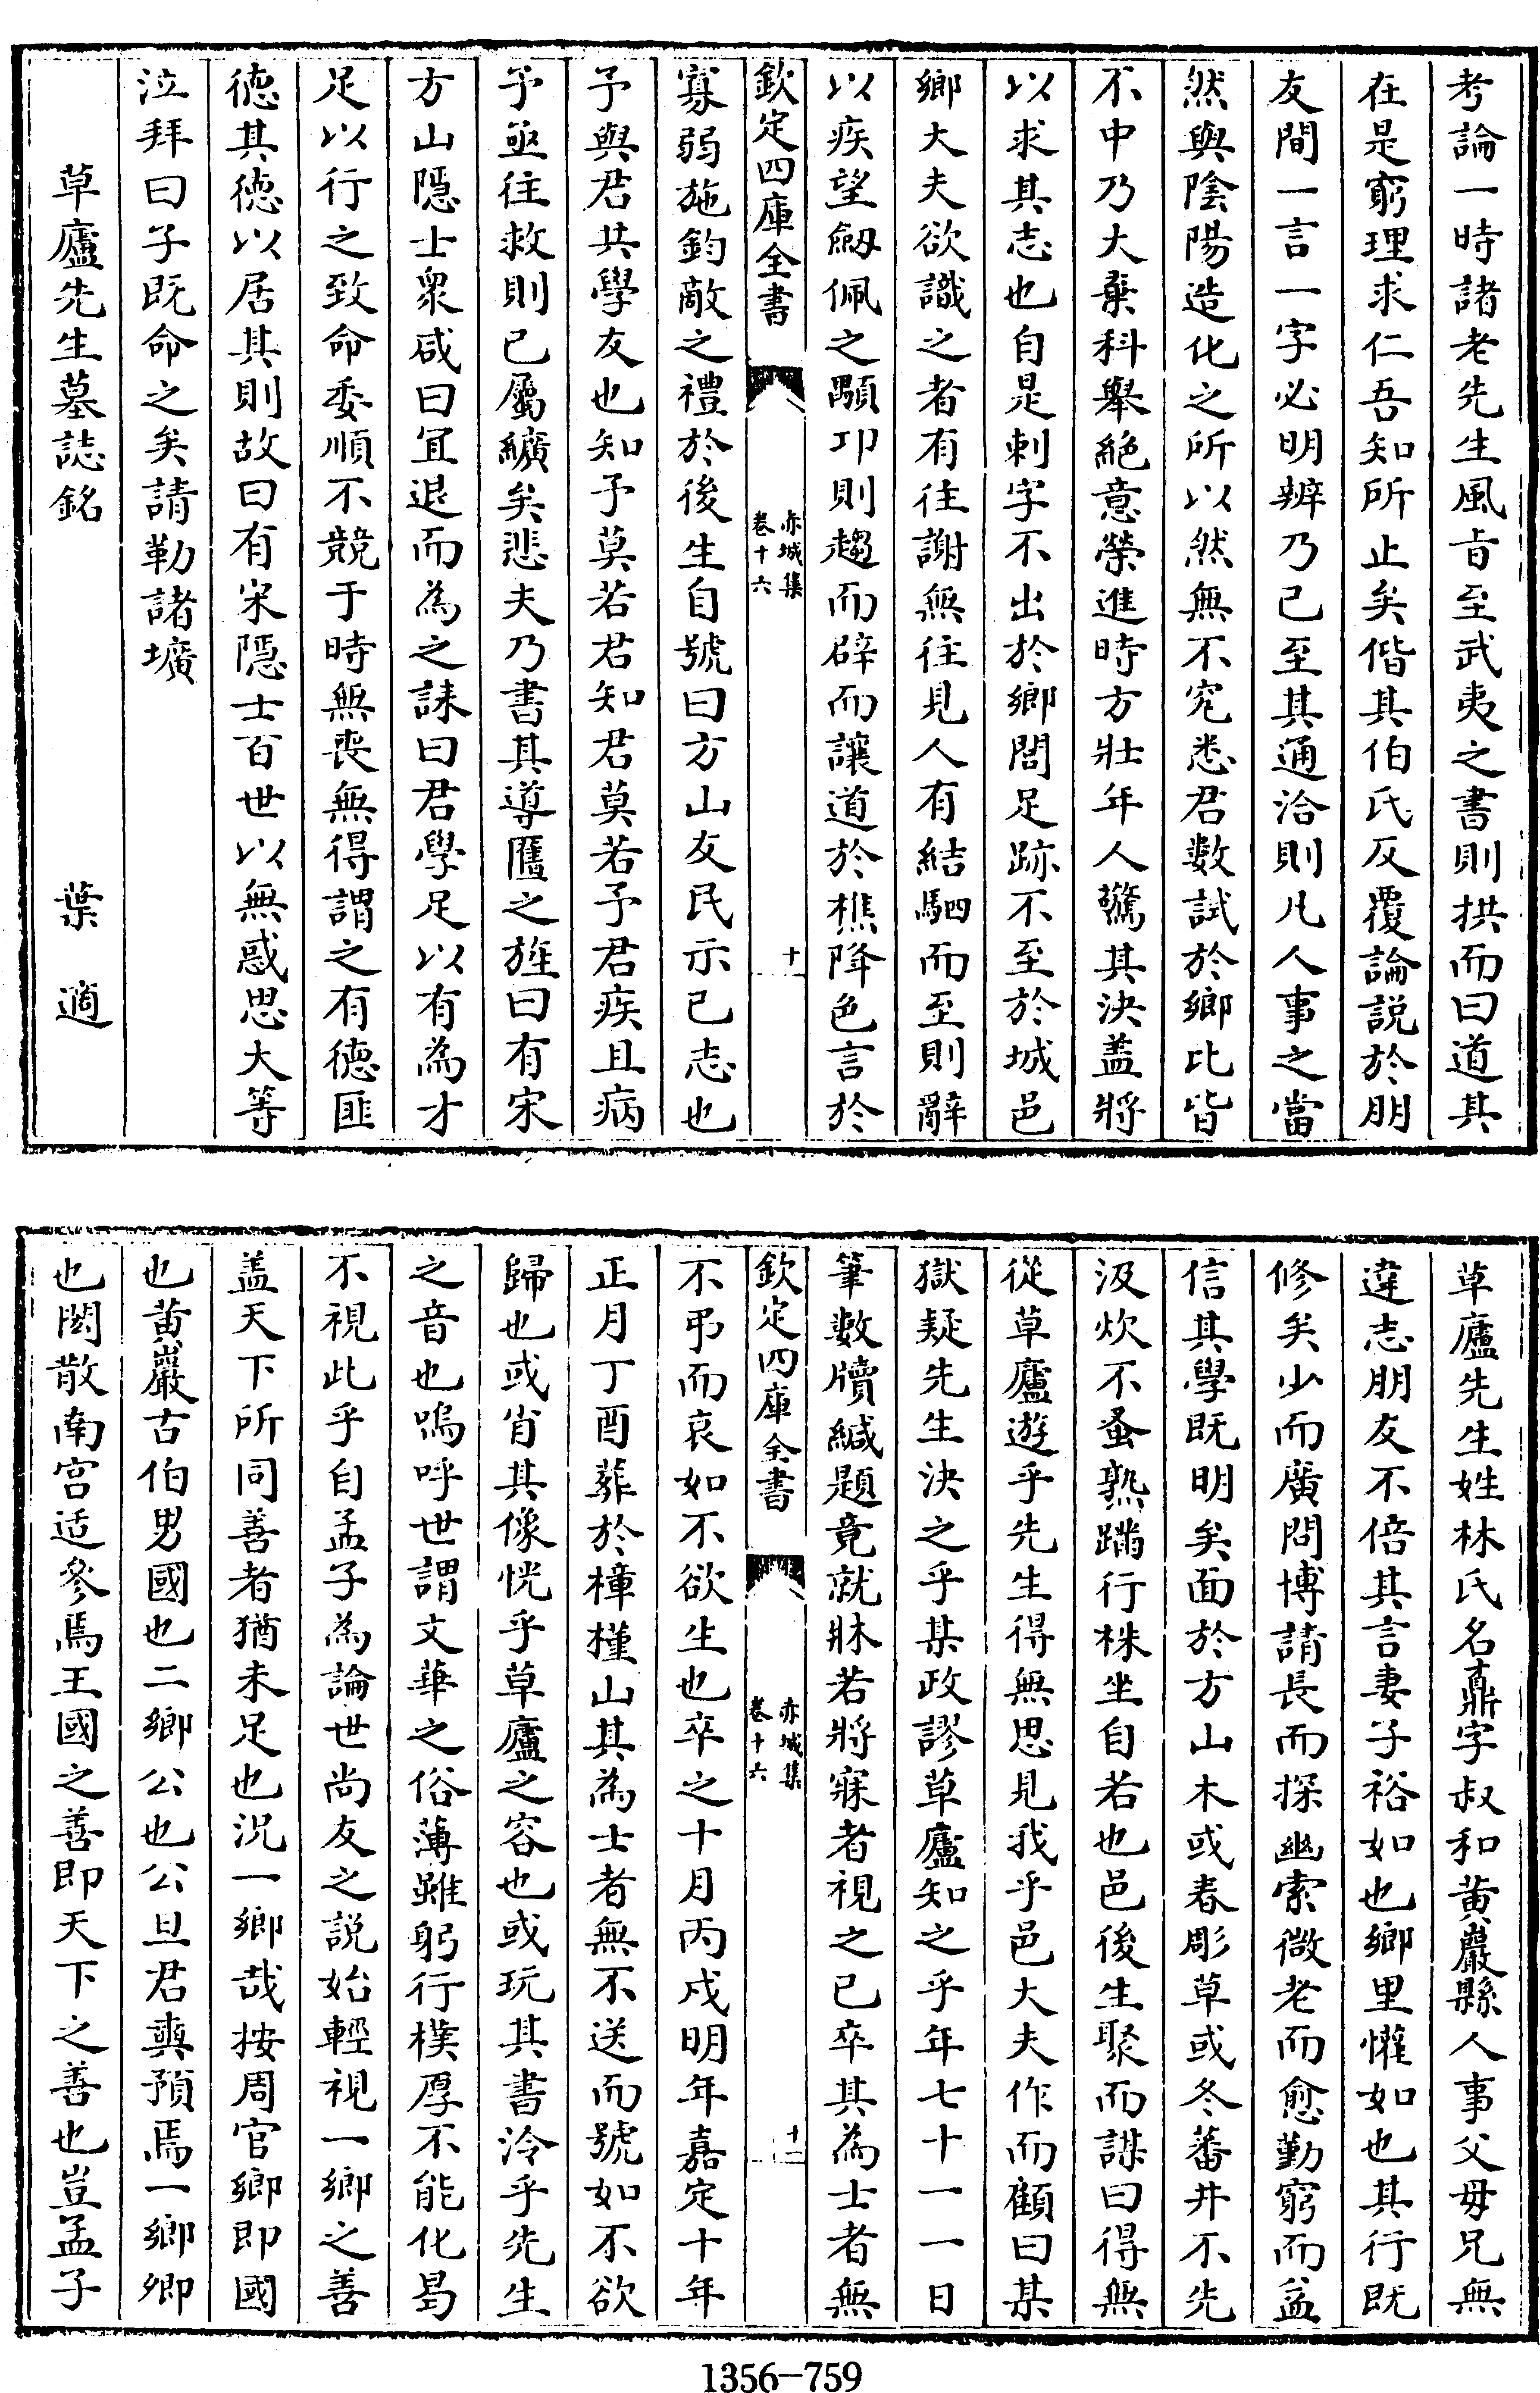 考論一時諸老先生風㫖至武夷之書則拱而曰道其
在是窮理求仁吾知所止矣偕其伯氏反覆論説於朋
友間一言一字必明辨乃已至其通洽則凡人事之當
然與陰陽造化之所以然無不究悉君數試於鄉比皆
不中乃大棄科舉絶意榮進時方壯年人驚其決盖將
以求其志也自是刺字不出於鄉閭足跡不至於城邑
鄉大夫欲識之者有往謝無往見人有結駟而至則辭
以疾望劒佩之顒卭則趨而辟而讓道於樵降色言於
欽定四庫全書
赤城集
卷十六
十
寡弱施鈞敵之禮於後生自號曰方山友民示已志也
予與君共學友也知予莫若君知君莫若予君疾且病
予亟往救則已屬纊矣悲夫乃書其導匶之旌曰有宋
方山隱士衆咸曰宜退而為之誄曰君學足以有為才
足以行之致命委順不競于時無喪無得謂之有徳匪
徳其徳以居其則故曰有宋隱士百世以無惑思大等
泣拜曰子既命之矣請勒諸壙
草廬先生墓誌銘
葉適
草廬先生姓林氏名鼒字叔和黄巖縣人事父毋兄無
違志朋友不倍其言妻子裕如也鄉里懽如也其行既
修矣少而廣問博請長而探幽索微老而愈勤窮而益
信其學既明矣面於方山木或春彫草或冬蕃井不先
汲炊不蚤熟蹣行株坐自若也邑後生聚而謀曰得無
從草廬遊乎先生得無思見我乎邑大夫作而顧曰某
獄疑先生決之乎某政謬草廬知之乎年七十一一日
筆數牘緘題竟就牀若將寐者視之已卒其為士者無
欽定四庫全書
赤城集
卷十六
十一
不弔而哀如不欲生也卒之十月丙戍明年嘉定十年
正月丁酉葬於樟槿山其為士者無不送而號如不欲
歸也或肖其像恍乎草廬之容也或玩其書泠乎先生
之音也嗚呼世謂文華之俗薄雖躬行樸厚不能化曷
不視此乎自孟子為論世尚友之説始輕視一鄉之善
盖天下所同善者猶未足也況一鄉哉按周官鄉即國
也黄巖古伯男國也二鄉公也公旦君奭預焉一鄉卿
也閎散南宫适參焉王國之善即天下之善也豈孟子
1356-759